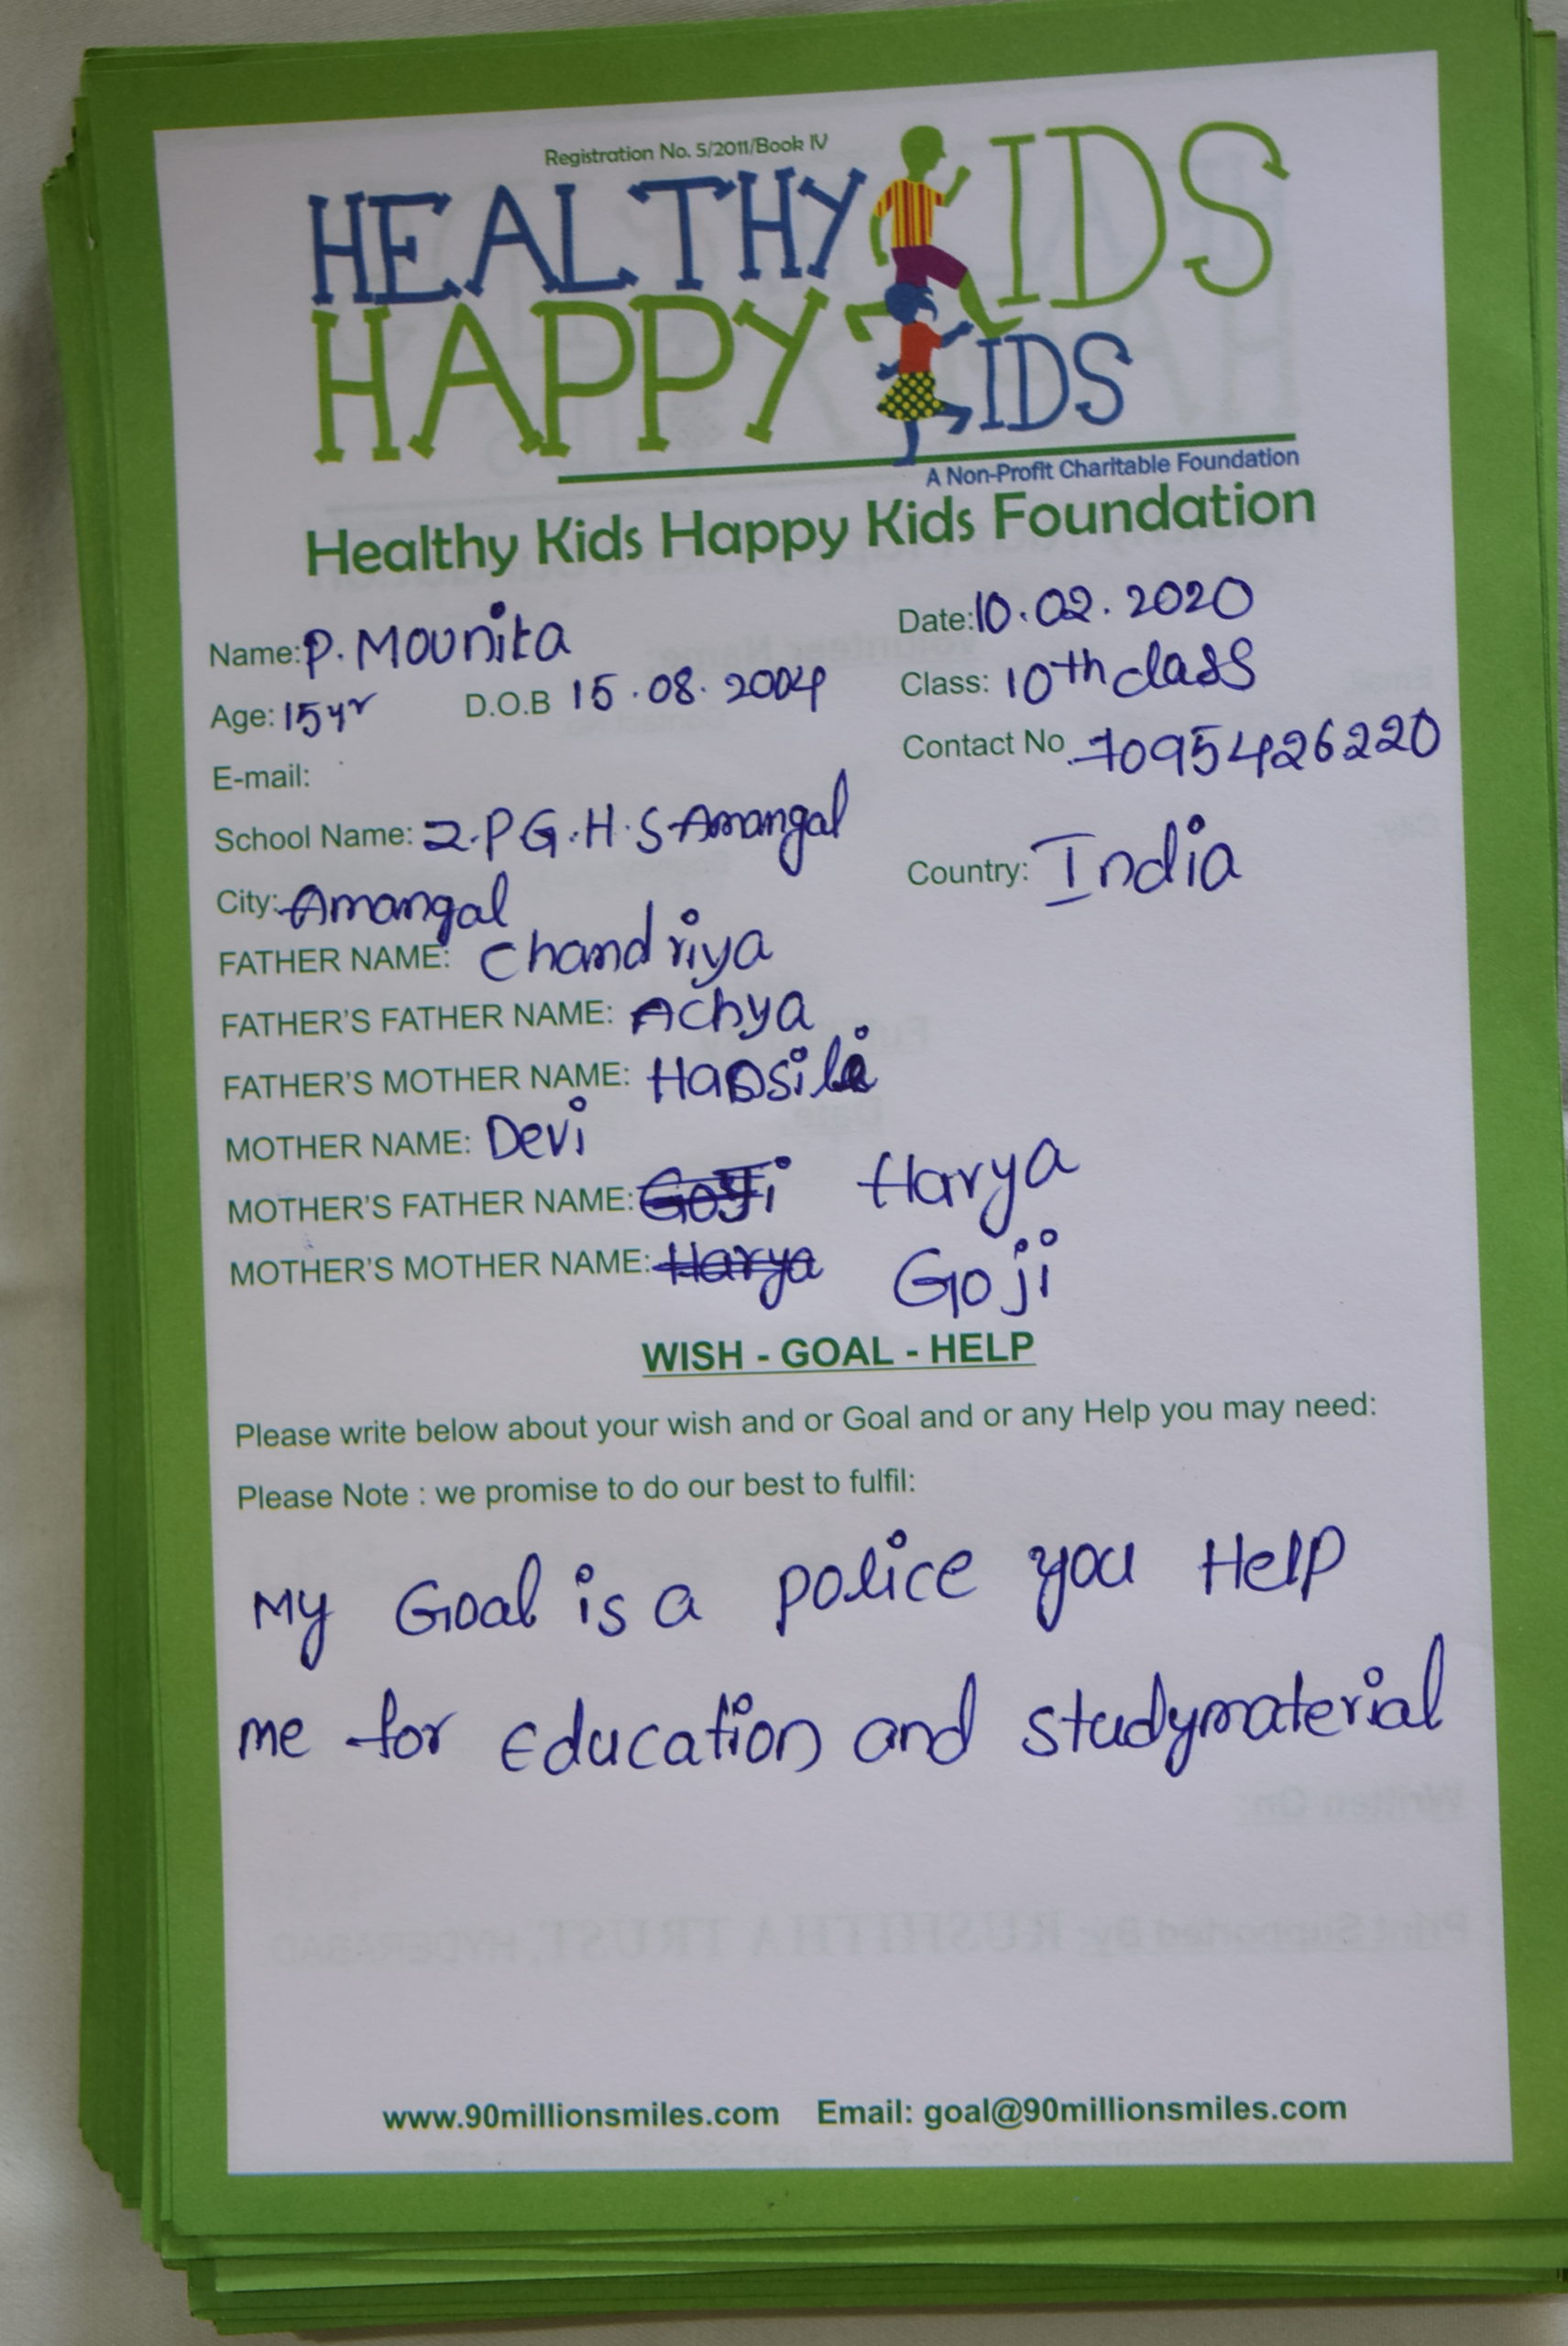 Registration No. 5/2011/Book IV
HEALTHY KIDS
HAPPY KIDS
A Non-Profit Charitable Foundation
Healthy Kids Happy Kids Foundation
Name: P. Mounika Date: 10.02.2020
Age: 15yr D.O.B 15.08.2004 Class: 10th class
E-mail: Contact No 7095426220
School Name: Z.P G.H.S Amangal
City: Amangal Country: India
FATHER NAME: Chandriya
FATHER'S FATHER NAME: Achya
FATHER'S MOTHER NAME:
MOTHER NAME: Devi
MOTHER'S FATHER NAME: Goji Harya
MOTHER'S MOTHER NAME: Harya Goji
WISH - GOAL - HELP
Please write below about your wish and or Goal and or any Help you may need:
Please Note : we promise to do our best to fulfil:
My Goal is a police you Help
me for Education and studymaterial
www.90millionsmiles.com Email: goal@90millionsmiles.com